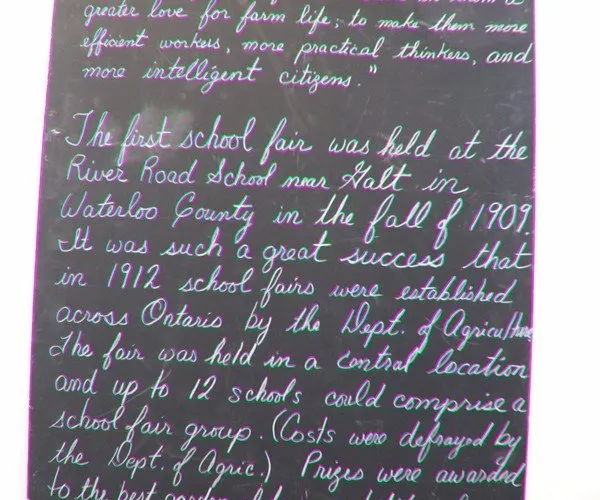 greater love for farm life; to make them more
efficient workers, more practical thinkers, and
more intelligent citizens."
- The first school fair was held at the
River Road School near Galt in
Waterloo County in the fall of 1909.
It was such a great success that
in 1912 school fairs were established
across Ontario by the Dept. of Agriculture
The fair was held in a central location
and up to 12 schools could comprise a
school fair group. (Costs were defrayed by
the Dept. of Agric.) Prizes were awarded
to the best garden